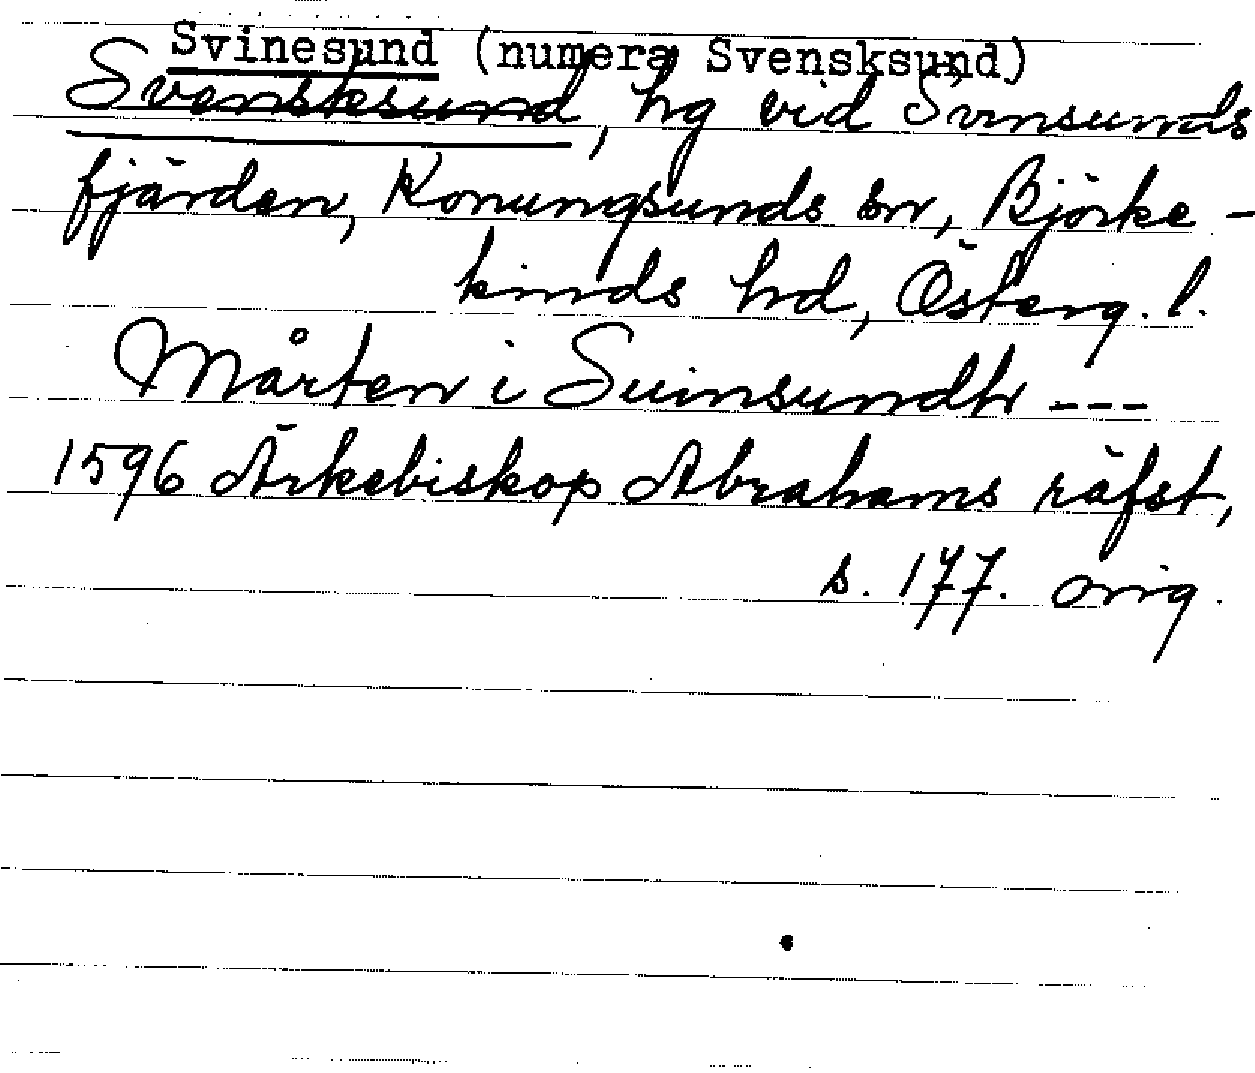 Svinesund (numera Svensksund)
Svensksund, hg vid Svinsunds
fjärden, Konungsunds sn, Björke-
kinds hd, Österg. l.
Mårten i Suinsundh ---
1596 Ärkebiskop Abrahams räfst,
s. 177. orig.